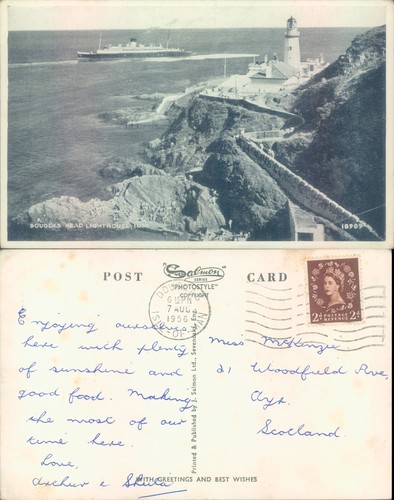 DOUGLAS HEAD LIGHTHOUSE, I.O.M.
18909
POST
Salmon
SERIES
"PHOTOSTYLE"
COPYRIGHT
CARD
DOUGLAS
6 45 PM
7 AUG
1956
ISLE OF MAN
2D POSTAGE REVENUE 2D
Enjoying ourselves
here with plenty
of sunshine and
good food. Making
the most of our
time here.
Love,
Arthur & Sheila
Printed & Published by J. Salmon Ltd., Sevenoaks, Eng.
Miss McKenzie
21 Woodfield Ave,
Ayr.
Scotland.
WITH GREETINGS AND BEST WISHES